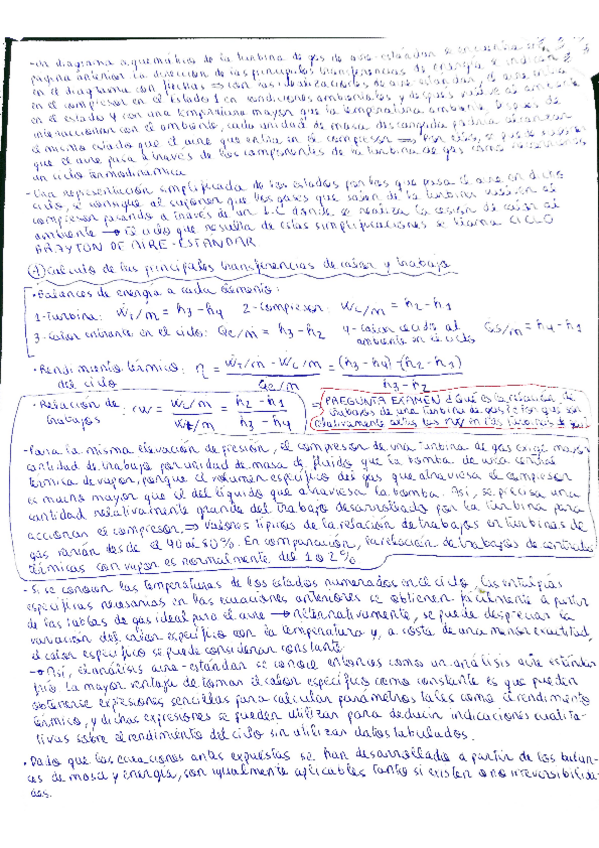 -Un diagrama esquemático de la turbina de gas de aire-estándar se encuentra en la
página anterior. La dirección de las principales transferencias de energía se indica
en el diagrama con flechas ⇒ con las idealizaciones de aire estándar, el aire entra
en el compresor en el estado 1 en condiciones ambientales y después vuelve al ambiente
en el estado 4 con una temperatura mayor que la temperatura ambiente. Después de
interaccionar con el ambiente, cada unidad de masa descargada podría alcanzar
el mismo estado que el aire que entra en el compresor ⇒ Por ello, se puede
que el aire pasa a través de los componentes de la turbina de gas como
un ciclo termodinámico
-Una representación simplificada de los estados por los que pasa el aire en dicho
ciclo, se consigue al suponer que los gases que salen de la turbina vuelven al
compresor pasando a través de un I.C donde se realiza la cesión de calor al
ambiente → El ciclo que resulta de estas simplificaciones se llama CICLO
BRAYTON DE AIRE-ESTÁNDAR
① Cálculo de las principales transferencias de calor y trabajo
• Balances de energía a cada elemento:
1-Turbina: Ẇt/ṁ = h3 - h4 2-Compresor: Ẇc/ṁ = h2 - h1
3-Calor entrante en el ciclo: Q̇e/ṁ = h3 - h2 4-Calor cedido al ambiente en el ciclo Q̇s/ṁ = h4 - h1
• Rendimiento térmico del ciclo: η = (Ẇt/ṁ - Ẇc/ṁ) / (Q̇e/ṁ) = ((h3-h4) - (h2-h1)) / (h3-h2)
• Relación de trabajos: rw = (Ẇc/ṁ) / (Ẇt/ṁ) = (h2-h1) / (h3-h4)
→ PREGUNTA EXAMEN ¿Qué es la relación de
trabajos de una turbina de gas? ¿Por qué son
relativamente altos los rw en las turbinas de gas?
-Para la misma elevación de presión, el compresor de una turbina de gas exige mayor
cantidad de trabajo por unidad de masa de fluido que la bomba de una central
térmica de vapor, porque el volumen específico del gas que atraviesa el compresor
es mucho mayor que el del líquido que atraviesa la bomba. Así, se precisa una
cantidad relativamente grande del trabajo desarrollado por la turbina para
accionar el compresor ⇒ valores típicos de la relación de trabajos en turbinas de
gas varían desde el 40 al 80%. En comparación, la relación de trabajos de centrales
térmicas con vapor es normalmente del 1 o 2%
- Si se conocen las temperaturas de los estados numerados en el ciclo, las entalpías
específicas necesarias en las ecuaciones anteriores se obtienen fácilmente a partir
de las tablas de gas ideal para el aire → Alternativamente, se puede despreciar la
variación del calor específico con la temperatura y, a costa de una menor exactitud,
el calor específico se puede considerar constante.
→ Así, el análisis aire-estándar se conoce entonces como un análisis aire estándar
frío. La mayor ventaja de tomar el calor específico como constante es que pueden
obtenerse expresiones sencillas para calcular parámetros tales como el rendimiento
térmico, y dichas expresiones se pueden utilizar para deducir indicaciones cualita-
tivas sobre el rendimiento del ciclo sin utilizar datos tabulados.
• Dado que las ecuaciones antes expuestas se han desarrollado a partir de los balan-
ces de masa y energía, son igualmente aplicables tanto si existen o no irreversibilida-
des.